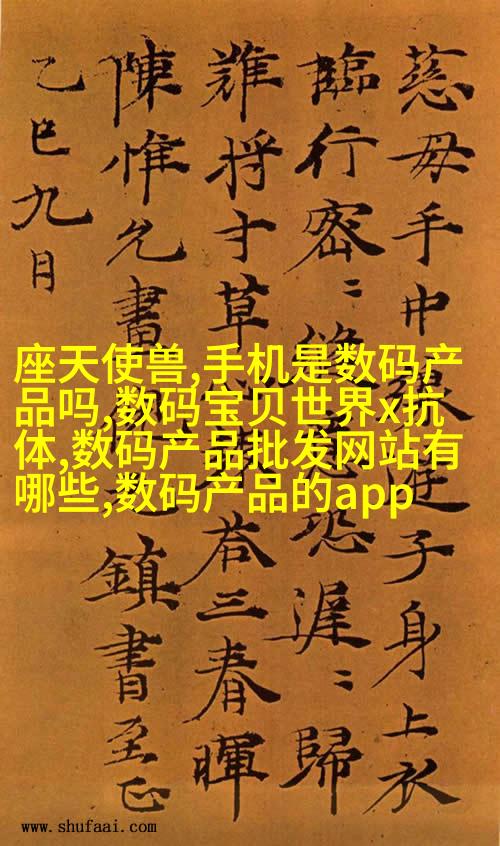 慈毋手中線遊子身上衣
臨行密〻縫恐遲〻歸
難将寸草心報荅三春暉
陳惟允書鎮書至正
乙巳九月
座天使兽,手机是数码产
品吗,数码宝贝世界x抗
体,数码产品批发网站有
哪些,数码产品的app
www.shufaai.com